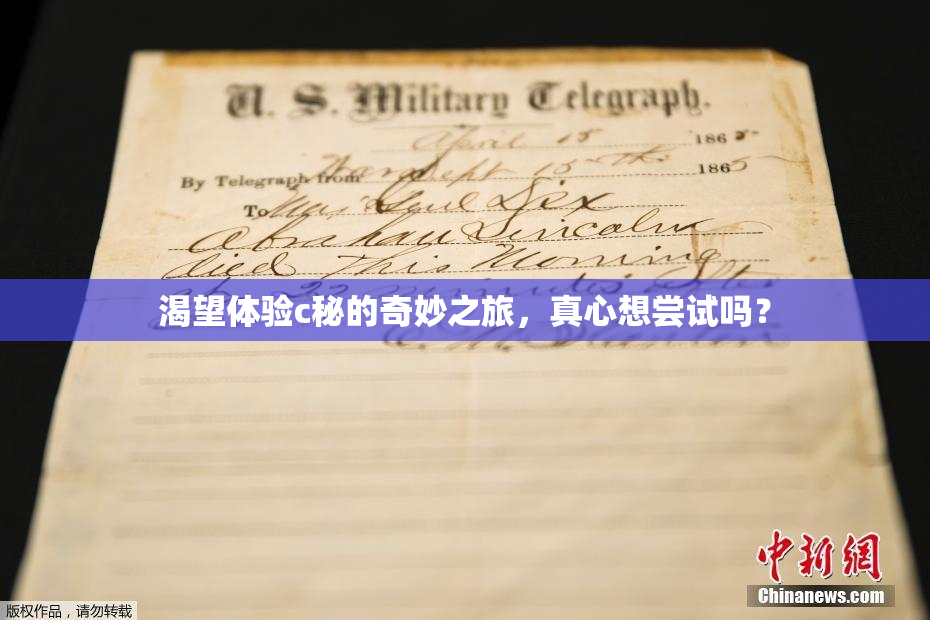 U. S. Military Telegraph.
April 15 1865
By Telegraph from War Dept 15th 1865
To Maj Genl Dix
Abraham Lincoln
died This Morning
at 22 minutes after
渴望体验c秘的奇妙之旅，真心想尝试吗？
中新網
Chinanews.com
版权作品，请勿转载